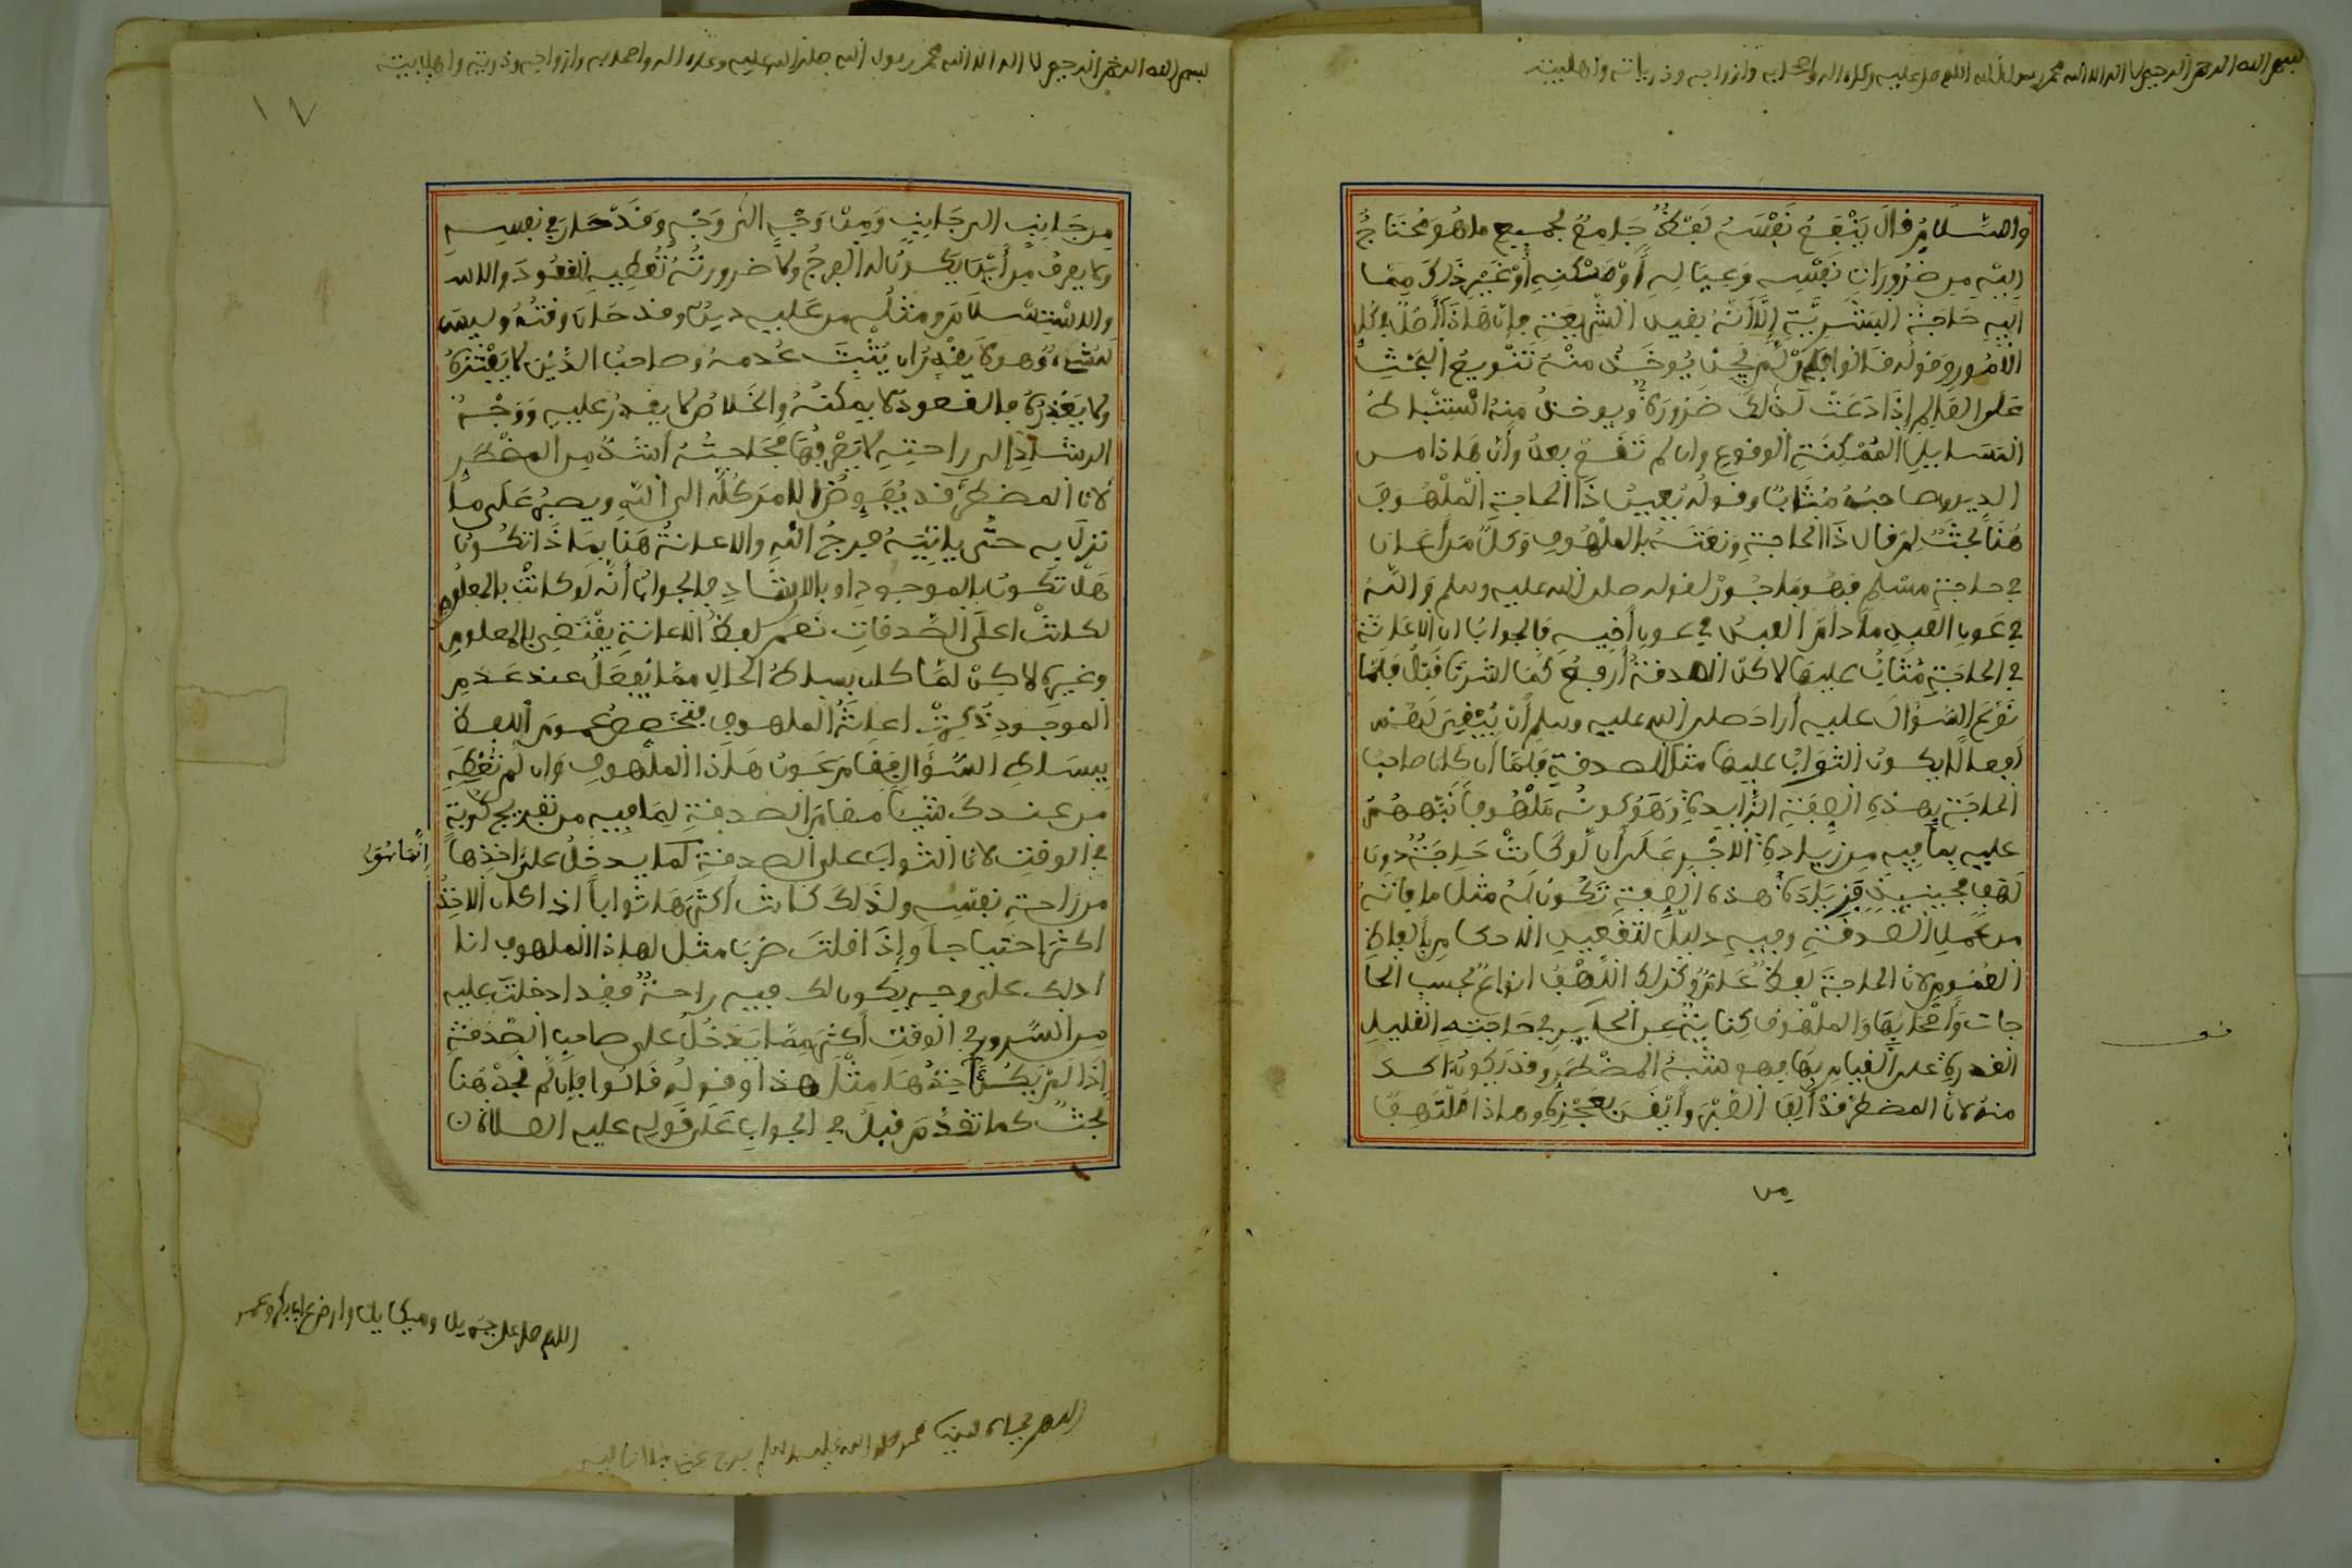 بسم الله الرحمن الرحيم لا اله الا الله محمد رسول الله اللهم صل عليه وعلى اله واصحابه وازواجه وذرياته واهل بيته
والسّلام قال ينفع نفسه لفظ جامع لجميع ما هو محتاج
اليه من ضرورات نفسه وعياله او مسكنه أو غير ذلك مما
اليه حاجة البشرية إلا أنه بقيد الشريعة فإن هاذا أصل في كل
الأمور وقوله قالوا فإن لم يجد يوخذ منه تنويع البحث
على العالم إذا دعت لذلك ضرورة ويوخذ منه استنباط
المسايل الممكنة الوقوع وان لم تقع بعد وأن هاذا من
الدين وصاحبه مثابا وقوله يعين ذا الحاجة الملهوف
هنا بحث لم قال ذا الحاجة ونعته بالملهوف وكل من أعان
في حاجة مسلم فهو ماجور لقوله صلى الله عليه وسلم والله
في عون العبد ما دام العبد في عون أخيه فالجواب ان الاعانة
في الحاجة مثاب عليها لاكن الصدقة أرفع كما اشرنا قبل فلما
نوع السؤال عليه أراد صلى الله عليه وسلم أن يبقي لهم
أفعالا يكون الثواب عليها مثل الصدقة فلما ان كان صاحب
الحاجة بهذه الصفة الزايدة وهو كونه ملهوفا نبههم
عليه بما فيه من زيادة الاجر على أن لو كانت حاجته دون
لهف فحينيذ بزيادة هذه الصفة تكون له مثل ما فاته
من عمل الصدقة وفيه دليل لتقعيد الاحكام بألفاظ
العموم لان الحاجة لفظ عام وكذلك اللهف انواع بحسب الحا
جات وأصحابها والملهوف كناية عن الحاير في حاجته القليل
القدرة على القيام بها فهو شبه المضطر وقد يكون اشد
منه لان المضطر قد ألف الضر وأيقن بعجزه وهاذا ملتهف
من
بسم الله الرحمن الرحيم لا اله الا الله محمد رسول الله صلى الله عليه وعلى اله واصحابه وازواجه وذريته واهل بيته
١٧
من جانب الى جانب ومن وجه الى وجه وقد حار في نفسه
ولا يعرف من أين يكون له الفرج ولا ضرورته تعطيه القعود والا
والاستسلام ومثله من عليه دين وقد حان وقته وليس
له شيء وهو لا يقدر ان يثبت عدمه وصاحب الدين لا ينتره
ولا يعذره فالقعود لا يمكنه والخلاص لا يقدر عليه ووجه
الرشاد الى راحته لا يعرفها فحاجته أشد من المضطر
لان المضطر قد يفوض الامر كله الى الله ويصبر على ما
نزل به حتى ياتيه فرج الله والاعانة هنا بماذا تكون
هل تكون بالموجود او بالارشاد فالجواب أنه لو كانت بالمعلوم
لكانت اعلى الصدقات نعم لفظ الاعانة يقتضي بالمعلوم
وغيره لاكن لما كان بساط الحال مما يفعل عند عدم
الموجود ذكرت اعانة الملهوف فتخصص عموم اللفظ
ببساط السؤال فقام عون هاذا الملهوف وان لم تعطه
من عندك شيئا مقام الصدقة لما فيه من تفريج كربة
في الوقت لان الثواب على الصدقة لما يدخل على اخذها
انما هو
من راحة نفسه ولذلك كانت أكثرها ثوابا اذا كان الاخذ
اكثر احتياجا وإذا قلت ضربا مثل لهاذا الملهوف انا
ادلك على وجه يكون لك فيه راحة فقد ادخلت عليه
من السرور في الوقت أكثر مما يدخل على صاحب الصدقة
إذا لم يكن آخذها مثل هذا وقوله قالوا فإن لم يجد هنا
بحث كما تقدم قبل في الجواب على قوله عليه الصلاة
اللهم صل على جبريل وميكايل وارض عن ابي بكر وعمر
اللهم بجاه نبينا محمد صلى الله عليه وسلم فرج عني